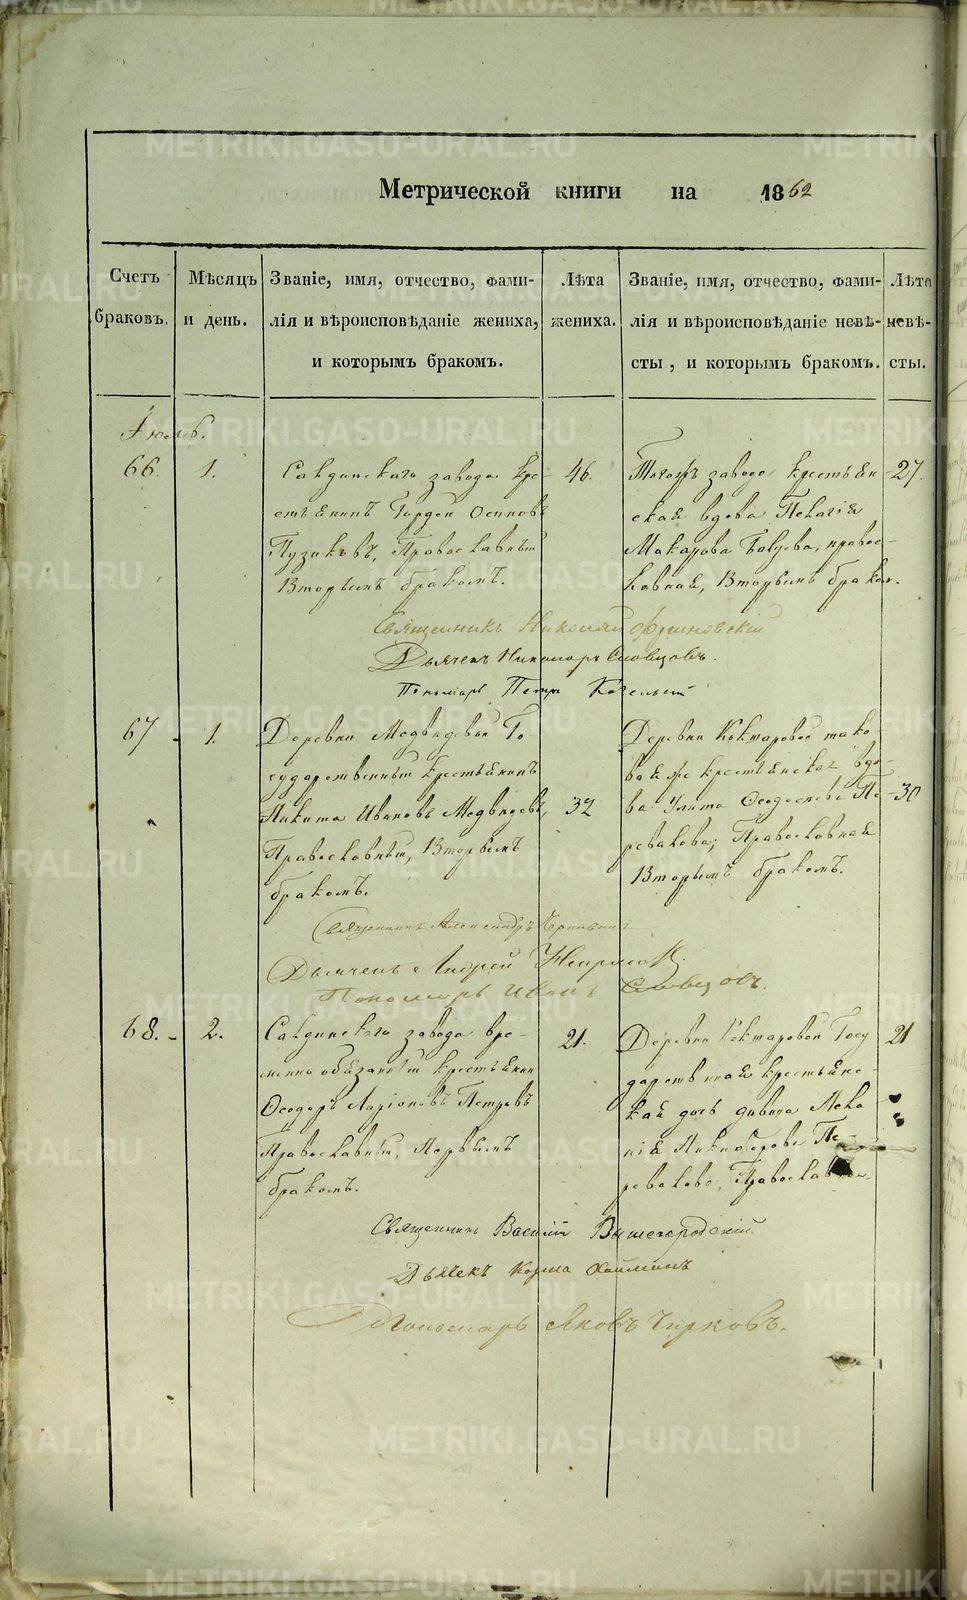 Метрической книги на 1862
Счетъ браковъ.
Мѣсяцъ и день.
Званіе, имя, отчество, фами-
лія и вѣроисповѣданіе жениха,
и которымъ бракомъ.
Лѣта жениха.
Званіе, имя, отчество, фами-
лія и вѣроисповѣданіе невѣ-
сты, и которымъ бракомъ.
Лѣта невѣ-
сты.
Іюль.
66. 1.
Салдинскаго завода кре-
стьянинъ Гордей Осиповъ
Пузиковъ, Православный
Вторымъ бракомъ.
46.
Тогожъ завода крестьян-
ская вдова Пелагія
Макарова, правос-
лавная, Вторымъ браком.
27.
Священникъ Николай
Дьячекъ Никаноръ Словцовъ.
Пономарь Петръ
67 1.
Деревни Медвѣдевой Го-
сударственный крестьянинъ
Никита Ивановъ Медвѣдевъ,
Православный, Вторымъ
бракомъ.
32
Деревни тако-
ваяже крестьянская вдо-
ва Улита Ѳеодосеева Пе-
ревалова, Православная
Вторымъ бракомъ.
30
Священникъ Александръ
Дьячекъ Андрей
Пономарь Иванъ Словцовъ.
68. 2.
Салдинскаго завода вре-
менно обязанный крестьянин
Ѳеодоръ Ларіоновъ Петровъ
Православный, Первымъ
бракомъ.
21.
Деревни Госу
дарственная крестьянс-
кая дочь дѣвица Мела-
нія Никифорова Пе-
ревалова, Православная.
21
Священникъ Василій Вышегородскій.
Дьячекъ Козма
Пономарь Яковъ Чирковъ.
METRIKI.GASO-URAL.RU